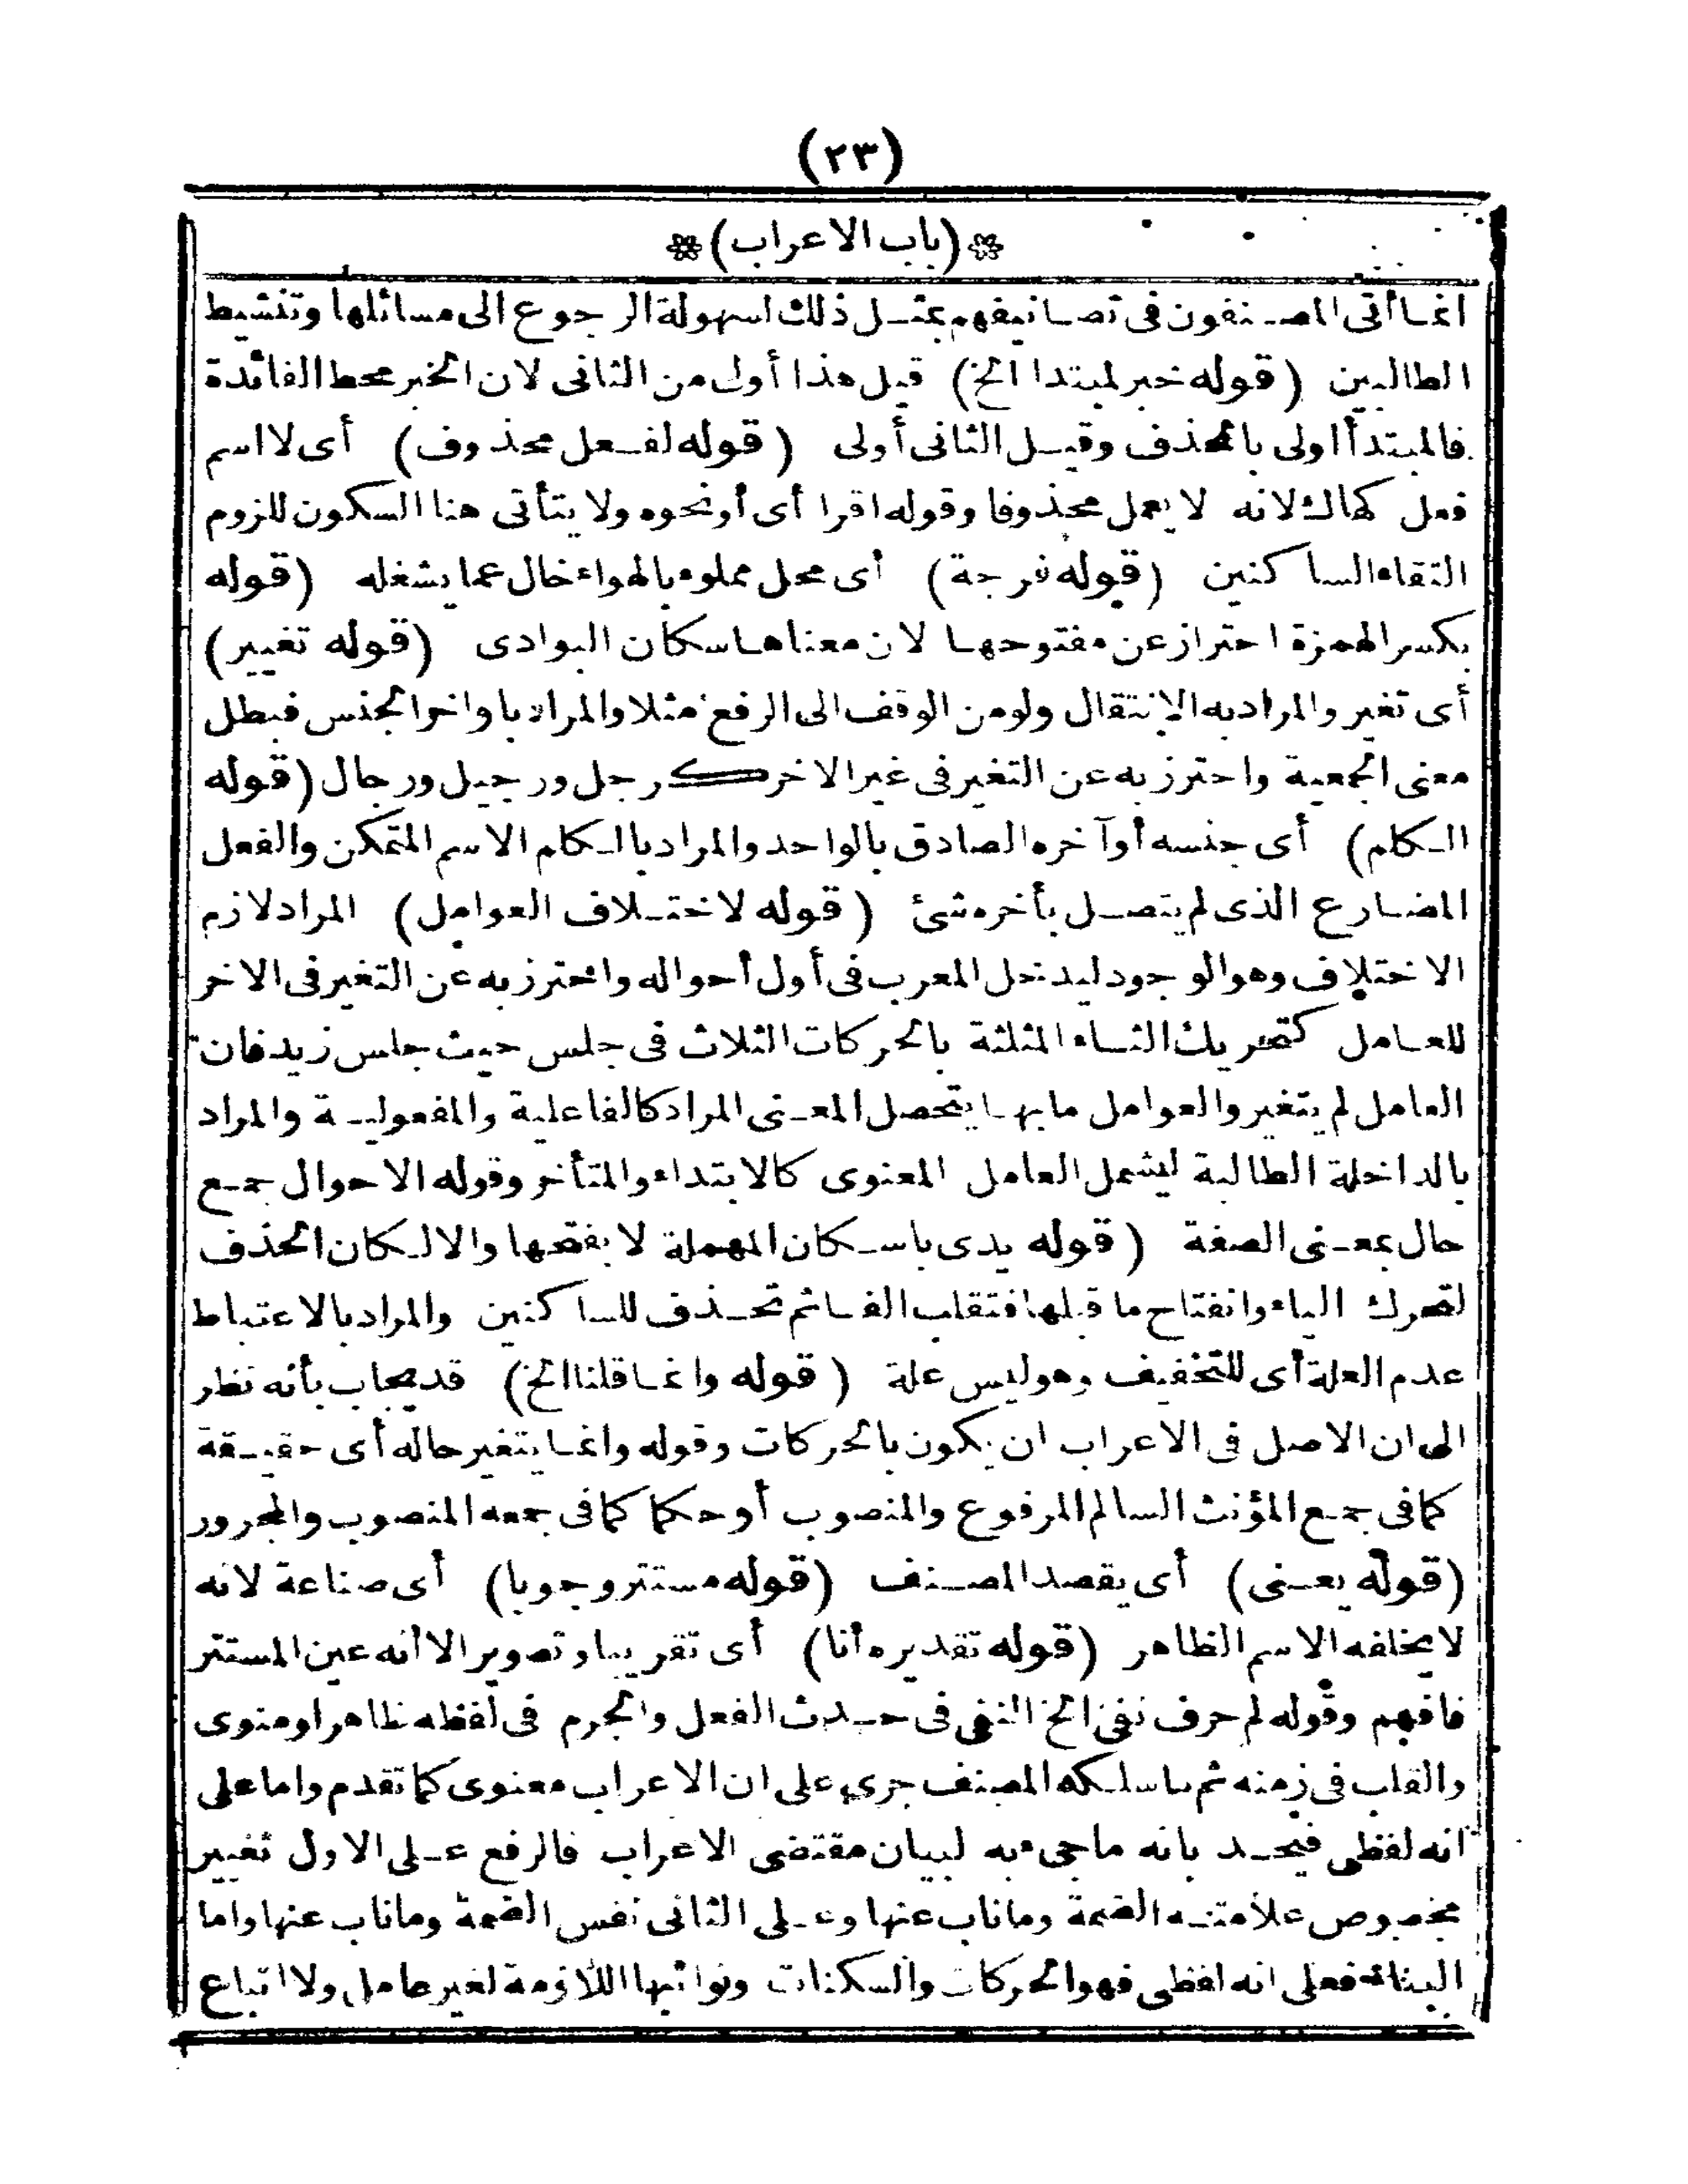 (٢٣)
❊(باب الاعراب)❊
انما أتى المصنفون فى تصانيفهم بمثل ذلك لسهولة الرجوع الى مسائلها وتنشيط
الطالبين (قوله خبر لمبتدا الخ) قيل هذا أولى من الثانى لان الخبر محط الفائدة
فالمبتدأ اولى بالحذف وقيل الثانى أولى (قوله لفعل محذوف) أى لا اسم
فعل كهاك لانه لا يعمل محذوفا وقوله اقرا أى أو نحوه ولا يتأتى هنا السكون للزوم
التقاء الساكنين (قوله فرجة) أى محل مملوء بالهواء خال عما يشغله (قوله
بكسر الهمزة احترازعن مفتوحها لان معناها سكان البوادى (قوله تغيير)
أى تغير والمراد به الانتقال ولو من الوقف الى الرفع مثلا والمراد باواخر الجنس فبطل
معنى الجمعية واحترز به عن التغير فى غير الاخر كرجل ورجيل ورجال (قوله
الكلم) أى جنسه أوآخره الصادق بالواحد والمراد بالكلم الاسم المتمكن والفعل
المضارع الذى لم يتصل بأخره شئ (قوله لاختلاف العوامل) المراد لازم
الاختلاف وهو الوجود ليدخل المعرب فى أول أحواله واحترز به عن التغير فى الاخر
للعامل كتحريك الثاء المثلثة بالحركات الثلاث فى جلس حيث جلس زيد فان
العامل لم يتغير والعوامل ما بها يتحصل المعنى المراد كالفاعلية والمفعولية والمراد
بالداخلة الطالبة ليشمل العامل المعنوى كالابتداء والمتأخر وقوله الاحوال جمع
حال بمعنى الصفة (قوله يدى باسكان المهملة لا بفتحها والا لكان الحذف
لتحرك الياء وانفتاح ما قبلها فتقلب الفا ثم تحذف للساكنين والمراد بالاعتباط
عدم العلة أى للتخفيف وهو ليس علة (قوله وانما قلنا الخ) قد يجاب بأنه نظر
الى ان الاصل فى الاعراب ان يكون بالحركات وقوله وانما يتغير حاله أى حقيقة
كما فى جمع المؤنث السالم المرفوع والمنصوب أو حكما كما فى جمعه المنصوب والمجرور
(قوله يعنى) أى يقصد المصنف (قوله مستتر وجوبا) أى صناعة لانه
لا يخلفه الاسم الظاهر (قوله تقديره أنا) أى تقريبا وتصوير الا أنه عين المستتر
فافهم وقوله لم حرف نفى الخ النفى فى حدث الفعل والجزم فى لفظه ظاهرا ومنوى
والقلب فى زمنه ثم ما سلكه المصنف جرى على ان الاعراب معنوى كما تقدم واما على
انه لفظى فيحد بانه ما جىء به لبيان مقتضى الاعراب فالرفع على الاول تغيير
مخصوص علامته الضمة وما ناب عنها وعلى الثانى نفس الضمة وما ناب عنها واما
البناء فعلى انه لفظى فهو الحركات والسكنات ونوائبها اللازمة لغير عامل ولا اتباع